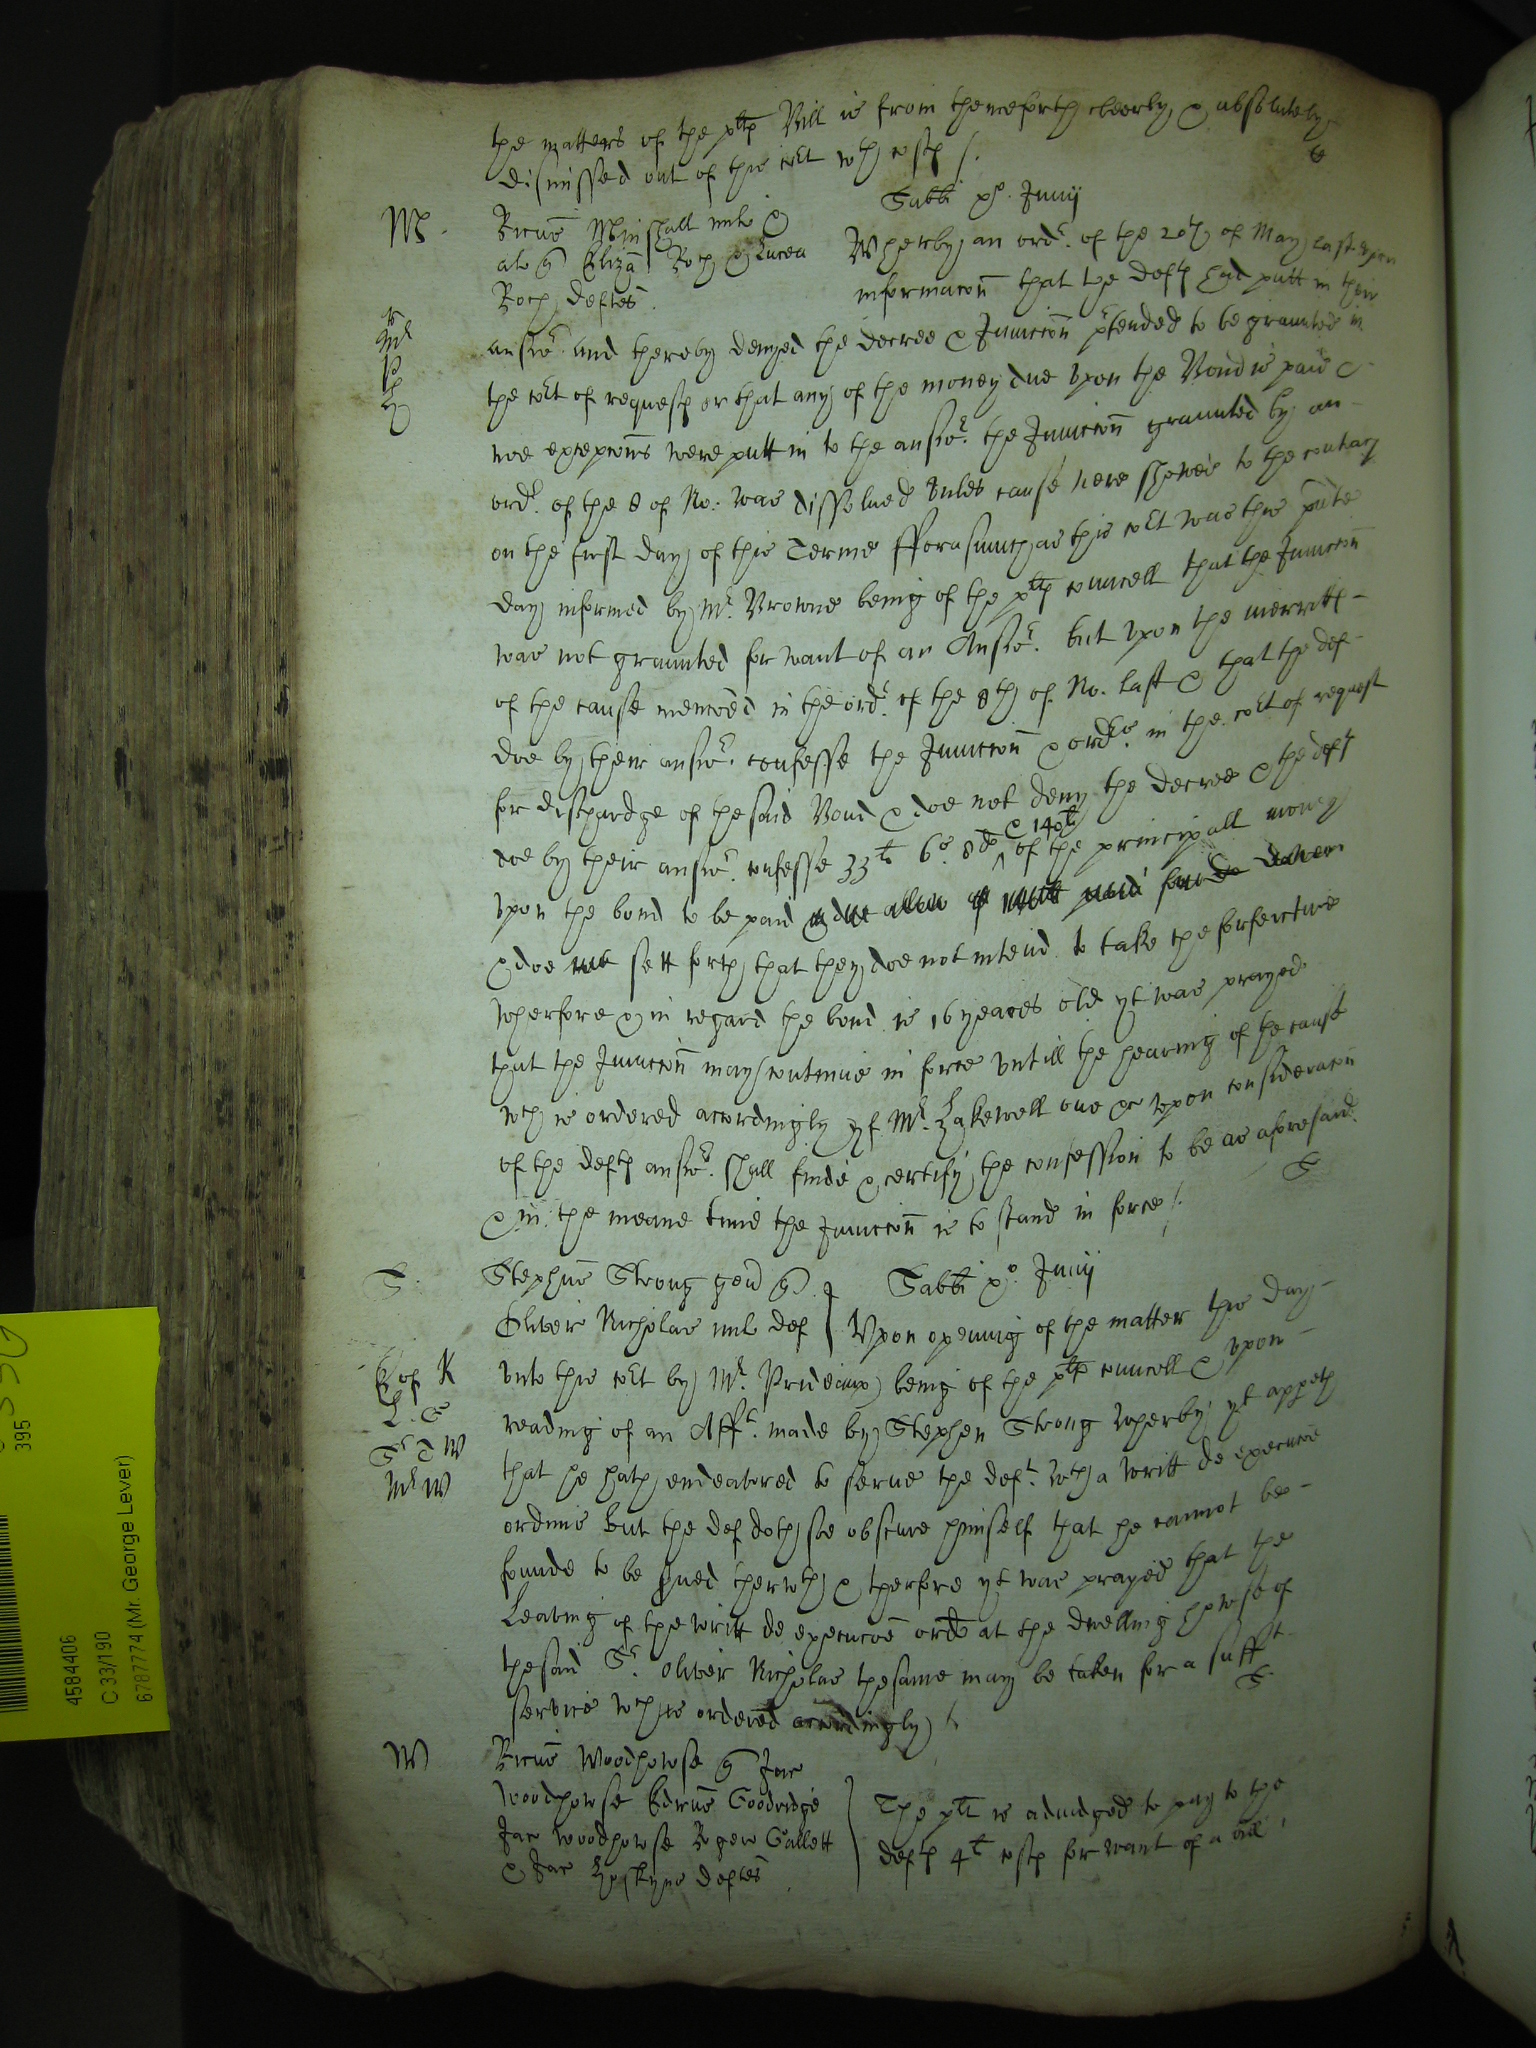 the matters of the plts Bill is from thenceforth cleerly & absolutely
dismissed out of this cort wth costs /.
Sabbi po Junij
M.
Ricus Minshall miles &
Whereby an ordr. of the 20th of May last upon
al q Eliza Roch & Lucea
informacon that the defts had putt in their
Roch deftes.
answr. and thereby denyed the decree & Iniuccon prtended to be graunted in
the cort of requests or that any of the money due upon the Bond is paid &
noe excepcons were putt in to the answr. the Iniuccon graunted by an
ordr. of the 8 of No: was dissolued unles cause were shewed to the contrary
on the first day of this Terme fforasmuch as this cort was this pnte
day informed by Mr. Browne being of the plts councell that the Iniuccon
was not graunted for want of an Answr. but upon the merritts
of the cause menconed in the ordr. of the 8th of No. last & that the def
doe by their answr. confesse the Iniuccon & ordrs. in the cort of request
for dischardge of the said Bond & doe not deny the decree & the defts
& 140li
doe by their answr. confesse 33li 6s. 8d of the principall money
upon the bond to be paid
& doe sett forth that they doe not intend to take the forfeicture
wherfore & in regard the bond is 16 yeares old yt was prayed
that the Iniuccon may continue in force untill the hearing of the cause
wch is ordered accordingly yf Mr. Hakewell one &c upon consideracon
of the defts answr. shall finde & certify the confession to be as aforesaid
& in the meane time the Iniuccon is to stand in force /.
S
S.
Stephus Strong gen q
Sabbi po. Junij
Oliver Nicholas mil def
Upon opening of the matter this day
K
unto this cort by Mr. Prideaux being of the plts councell & upon
reading of an Afft. made by Stephen Strong wherby yt appeth
Sr T W
that he hath endeavored to serve the deft. wth a writt de execucoe
Mr W
ordinis but the def doth soe obscure himself that he cannot be
founde to be srued therwth & therfore yt was prayed that the
Leaving of the writt de execucoe ordis at the dwelling howse of
the said Sr. Oliver Nicholas the same may be taken for a sufft
service wch is ordered accordingly /.
S
W
Ricus Woodhowse q Jac
Woodhowse Edrus Goodridge
The plt is adiudged to pay to the
Jac Woodhowse Roger Gallett
defts 4li costs for want of a bill /
& Jac Hoskyns deftes
4584406
C 33/190
6787774 (Mr. George Lever)
395